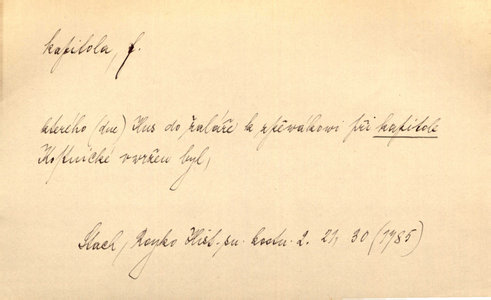 kapitola, f.
kterého (dne) Hus do žaláře k zpěwákowi při kapitole
Kostnické uwržen byl,
Stach, Royko Hist. sn. kostn. 2. 21, 30 (1785)